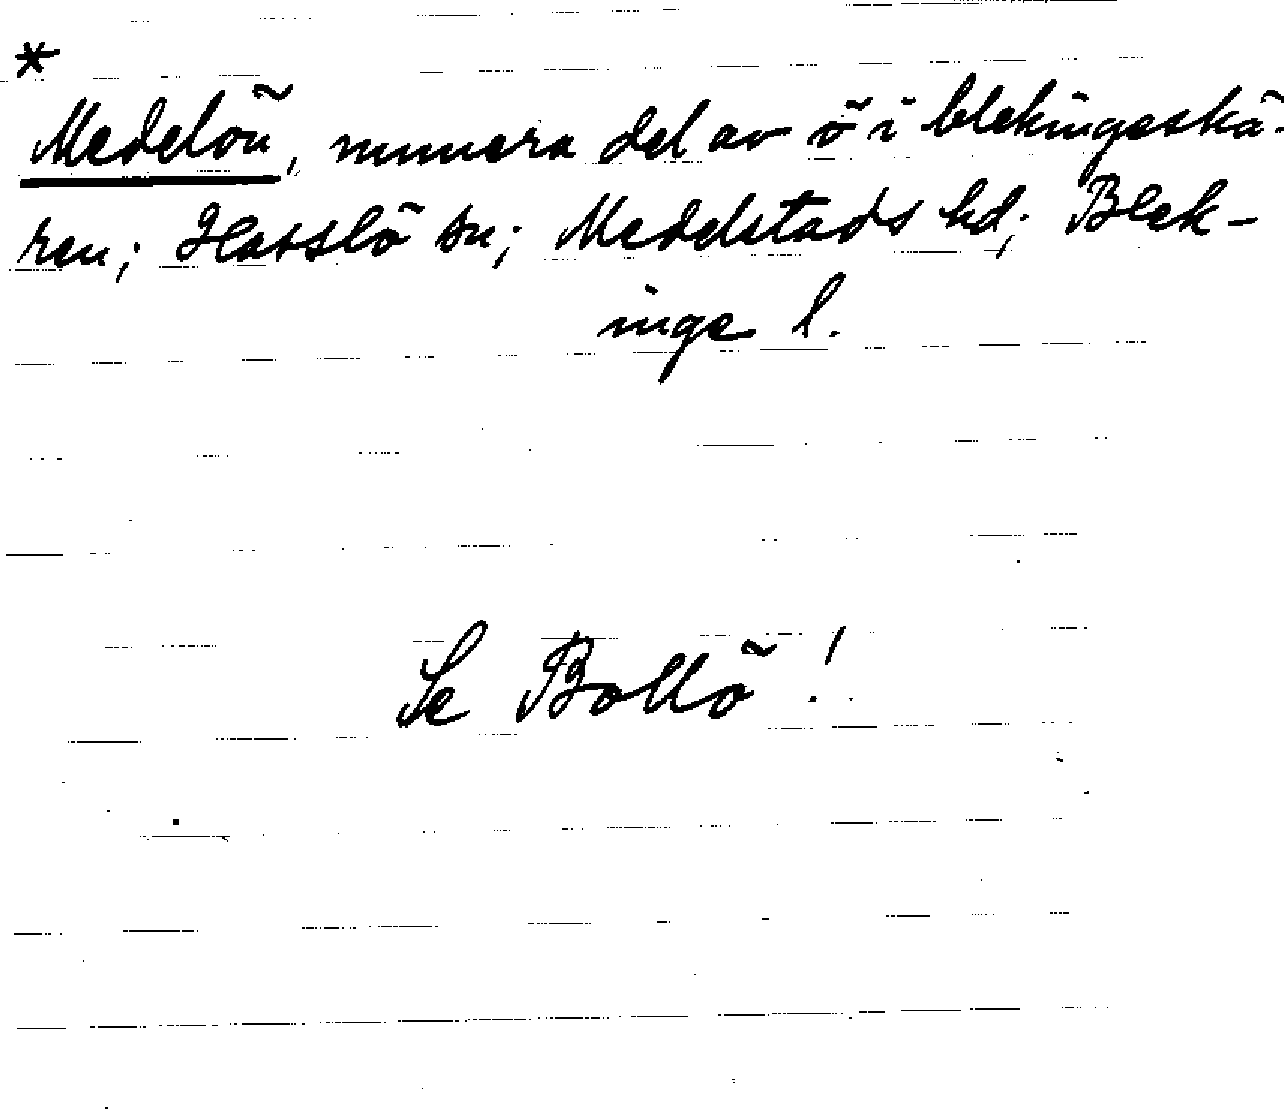 *
Medelön, numera del av ö i blekingeskä-
ren; Hasslö sn; Medelstads hd; Blek-
inge l.
Se Bollö!